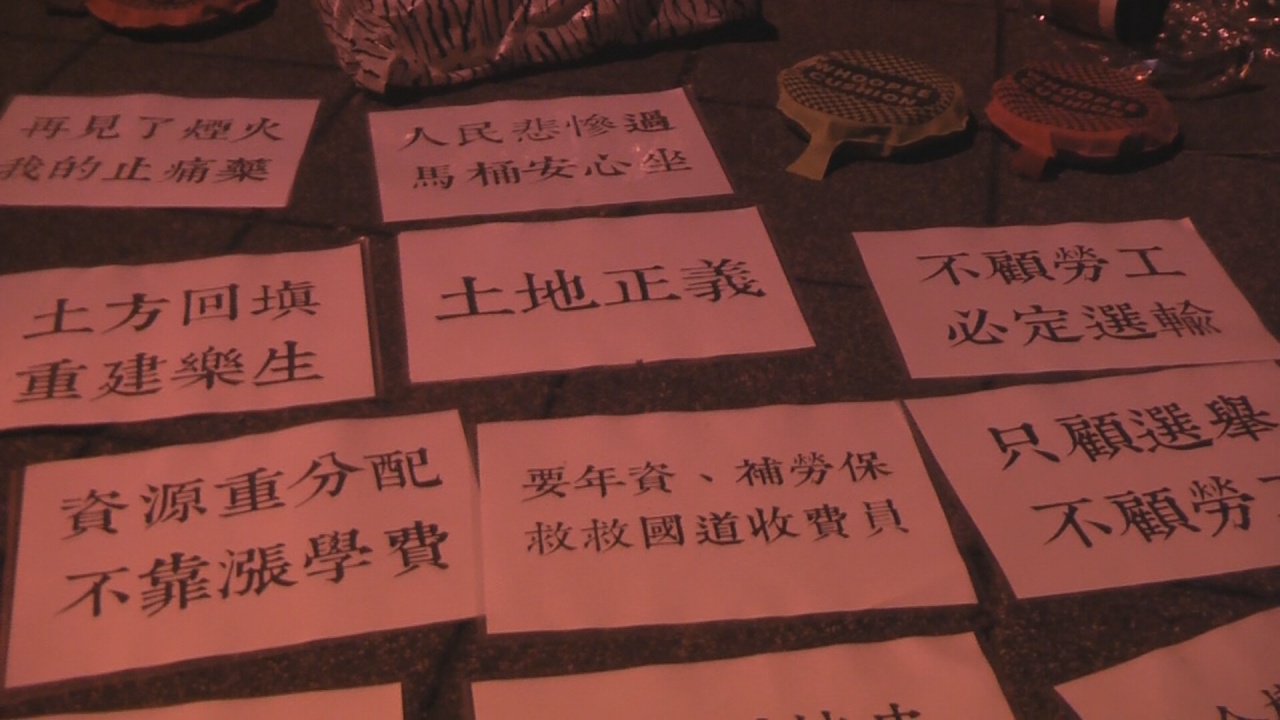 再見了煙火
我的止痛藥
人民悲慘過
馬桶安心坐
WHOOPEE
CUSHION
WHOOPEE
CUSHION
土方回填
重建樂生
土地正義
不顧勞工
必定選輸
資源重分配
不靠漲學費
要年資、補勞保
救救國道收費員
只顧選舉
不顧勞